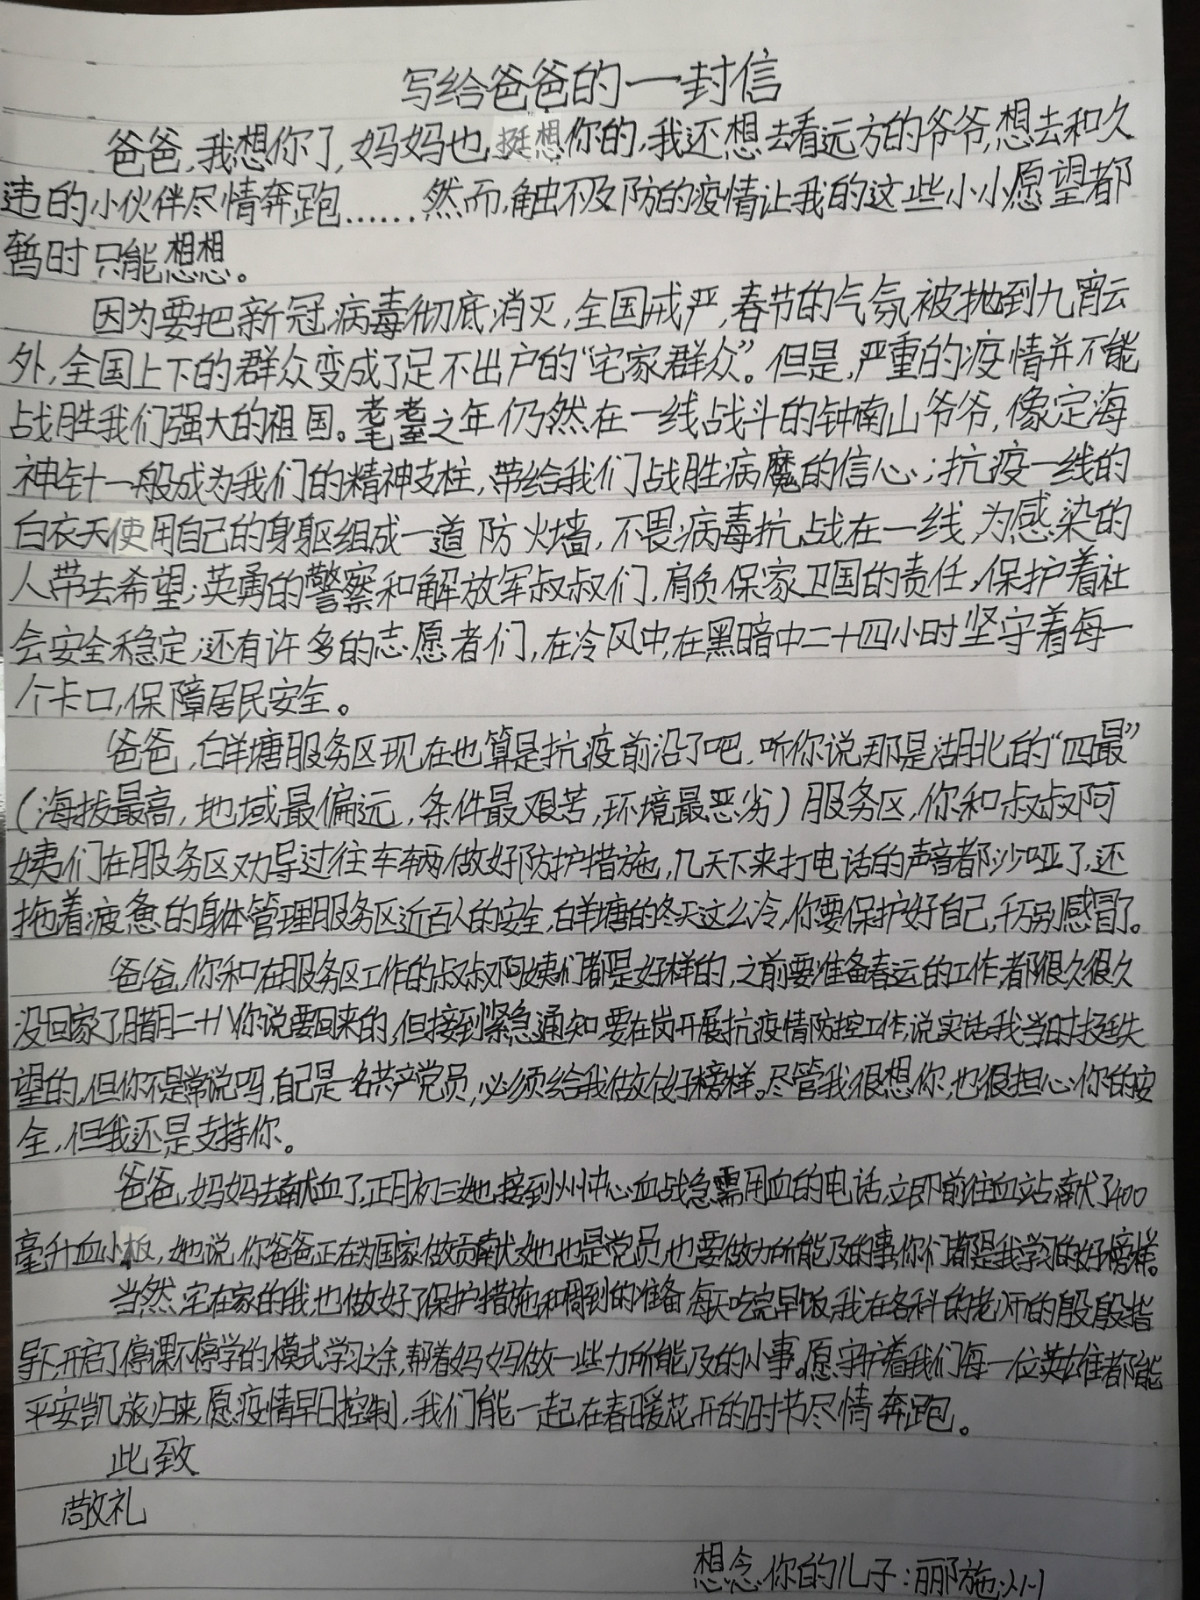 写给爸爸的一封信
爸爸，我想你了，妈妈也挺想你的，我还想去看远方的爷爷，想去和久
违的小伙伴尽情奔跑……然而，触不及防的疫情让我的这些小小愿望都
暂时只能想想。
因为要把新冠病毒彻底消灭，全国戒严，春节的气氛被抛到九霄云
外，全国上下的群众变成了足不出户的“宅家群众”。但是，严重的疫情并不能
战胜我们强大的祖国。耄耋之年仍然在一线战斗的钟南山爷爷，像定海
神针一般成为我们的精神支柱，带给我们战胜病魔的信心；抗疫一线的
白衣天使用自己的身躯组成一道防火墙，不畏病毒抗战在一线，为感染的
人带去希望；英勇的警察和解放军叔叔们，肩负保家卫国的责任，保护着社
会安全稳定；还有许多的志愿者们，在冷风中，在黑暗中二十四小时坚守着每一
个卡口，保障居民安全。
爸爸，白羊塘服务区现在也算是抗疫前沿了吧，听你说那是湖北的“四最”
（海拔最高，地域最偏远，条件最艰苦，环境最恶劣）服务区，你和叔叔阿
姨们在服务区劝导过往车辆做好防护措施，几天下来打电话的声音都沙哑了，还
拖着疲惫的身体管理服务区近百人的安全，白羊塘的冬天这么冷，你要保护好自己，千万别感冒了。
爸爸，你和在服务区工作的叔叔阿姨们都是好样的，之前要准备春运的工作，都很久很久
没回家了，腊月二十八你说要回来的，但接到紧急通知要在岗开展抗疫情防控工作，说实话，我当时挺失
望的，但你不是常说吗，自己是一名共产党员，必须给我做个好榜样。尽管我很想你，也很担心你的安
全，但我还是支持你。
爸爸，妈妈去献血了，正月初三她接到州中心血战急需用血的电话，立即前往血站献了400
毫升血小板，她说，你爸爸正在为国家做贡献，她也是党员，也要做力所能及的事，你们都是我学习的好榜样。
当然，宅在家的我也做好了保护措施和周到的准备，每天吃完早饭，我在各科的老师的殷殷指
导下，开启了停课不停学的模式，学习之余，帮着妈妈做一些力所能及的小事。愿守护着我们每一位英雄都能
平安凯旋归来，愿疫情早日控制，我们能一起在春暖花开的时节尽情奔跑。
此致
敬礼
想念你的儿子：郦施州